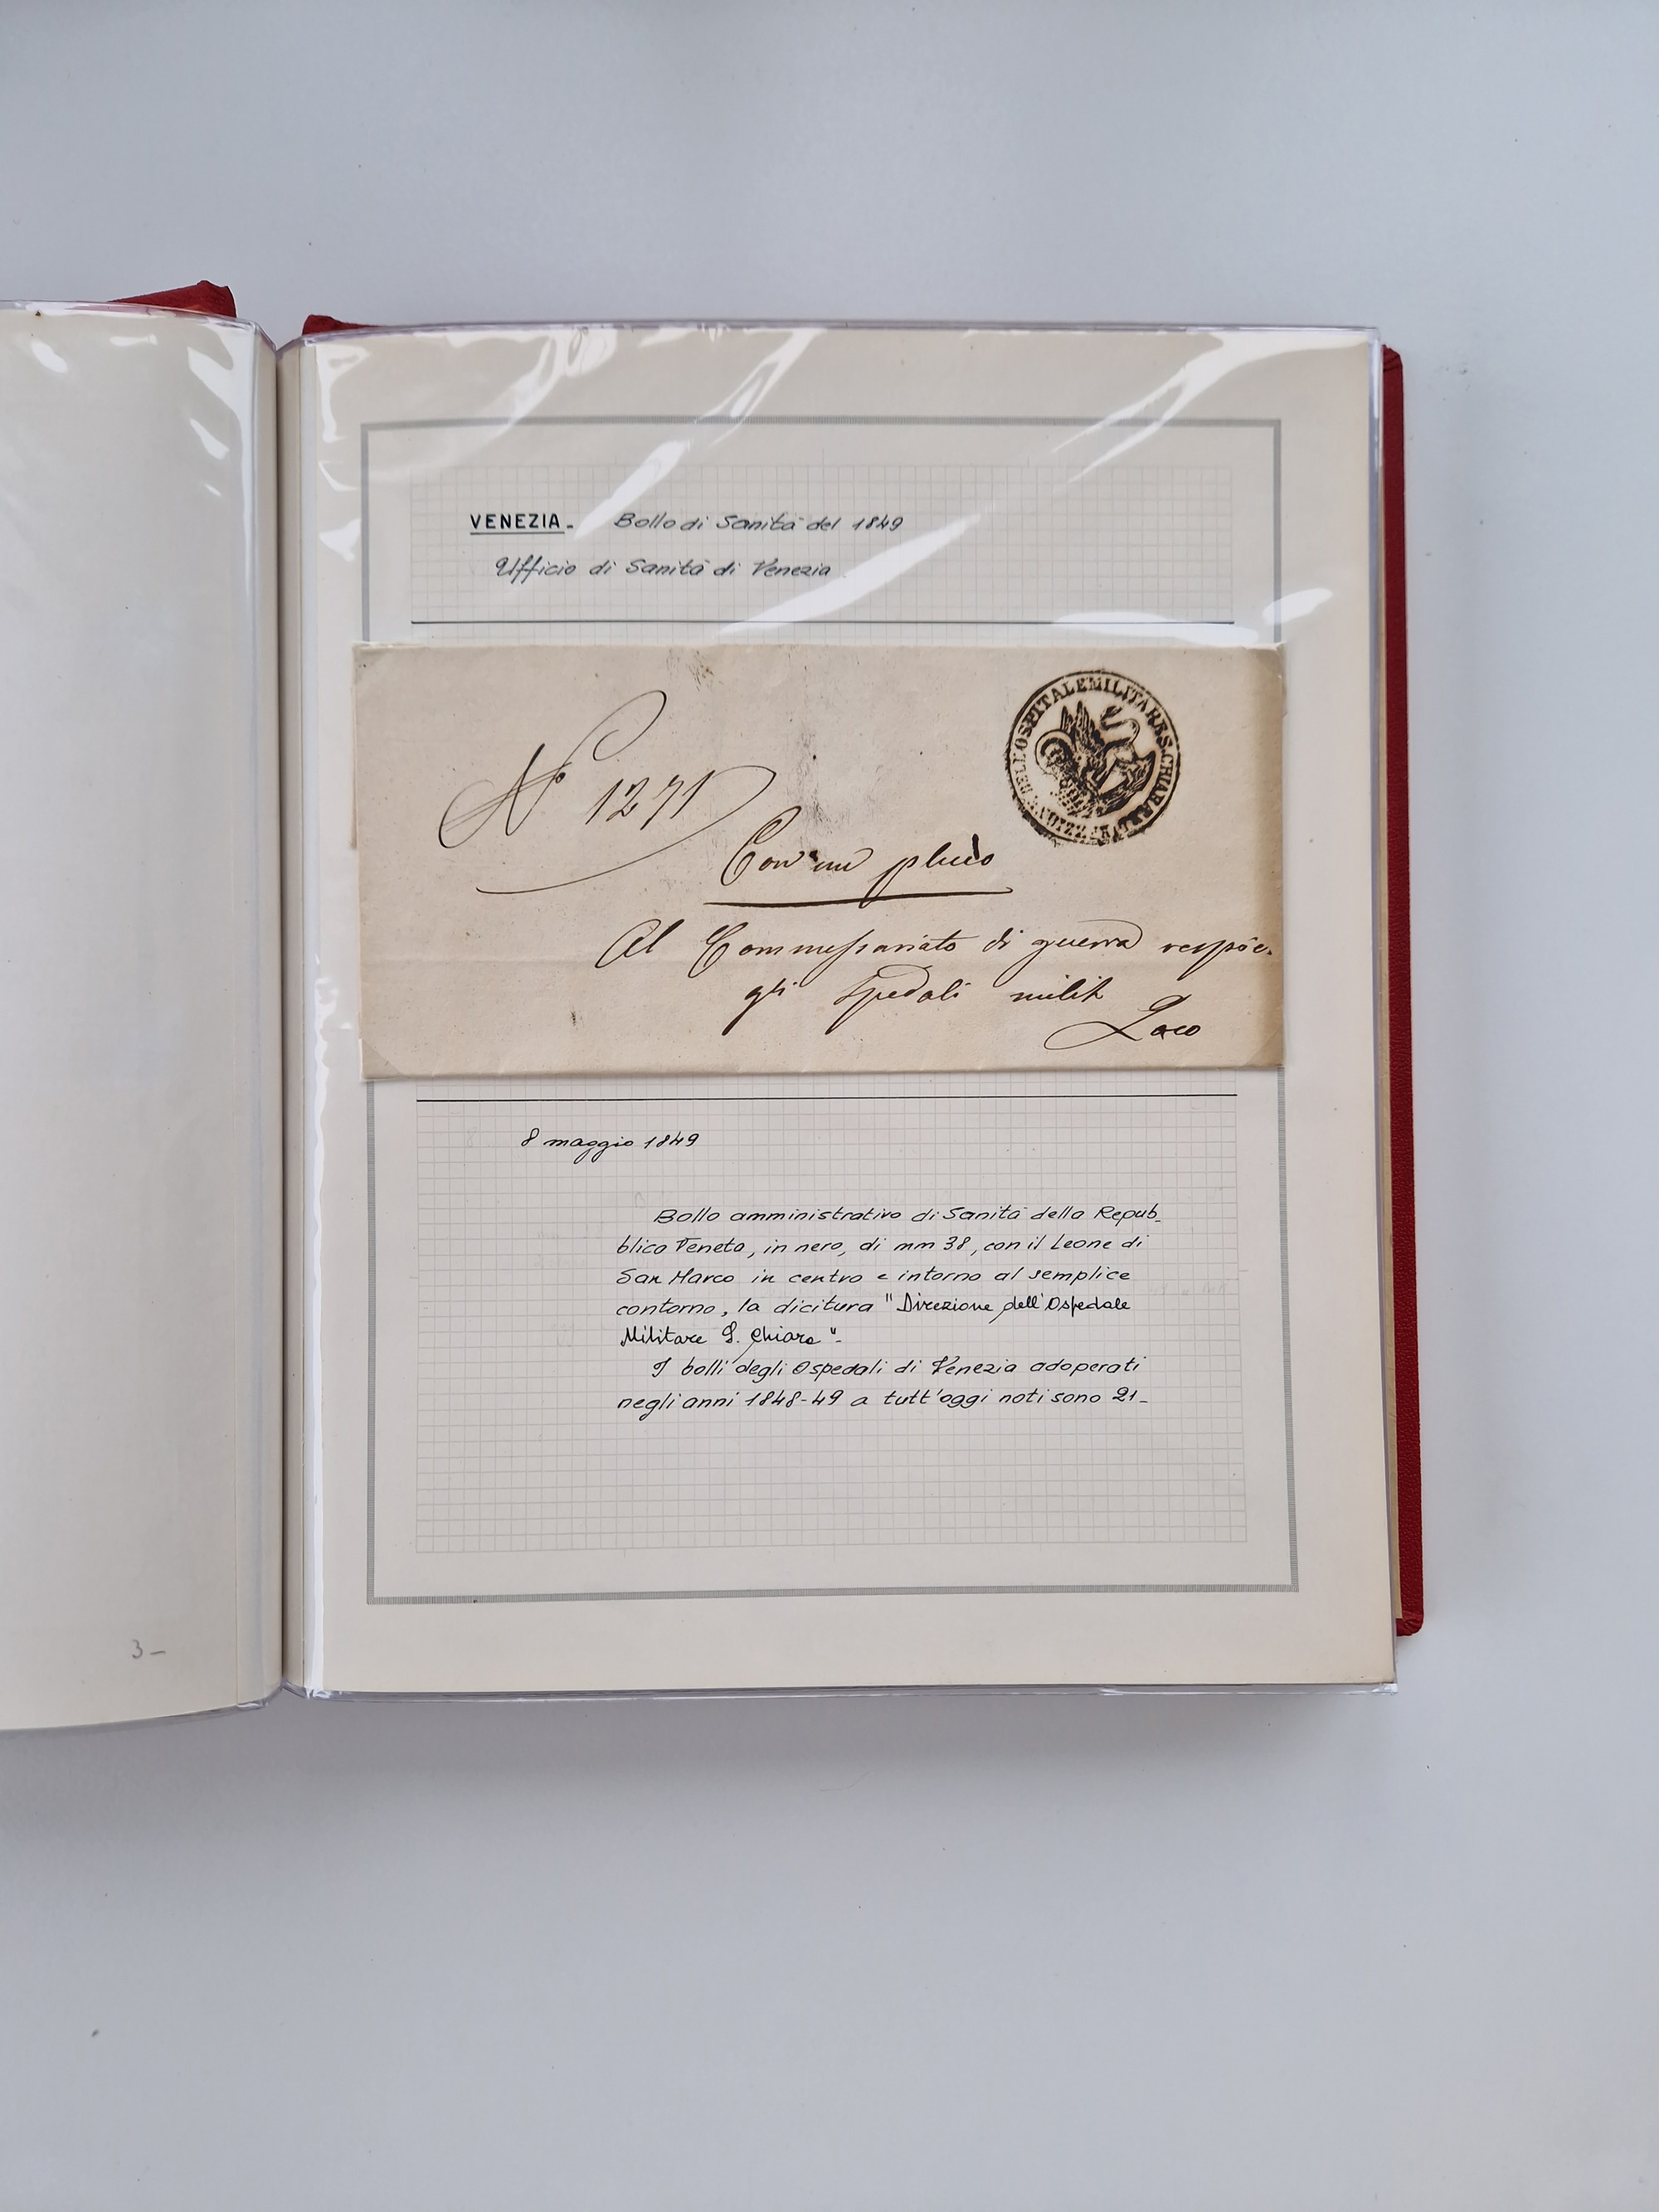 VENEZIA- Bollo di Sanità del 1849
Ufficio di Sanità di Venezia
DELL'OSPITALE MILITARE S. CHIARA
N° 1271
Con un plico
Al Commessariato di guerra
gli Spedali milit
Loco
8 maggio 1849
Bollo amministrativo di Sanità della Repub-
blica Veneta, in nero, di mm 38, con il Leone di
San Marco in centro e intorno al semplice
contorno, la dicitura "Direzione dell'Ospedale
Militare S. Chiara"-
I bolli degli Ospedali di Venezia adoperati
negli anni 1848-49 a tutt'oggi noti sono 21-
3-